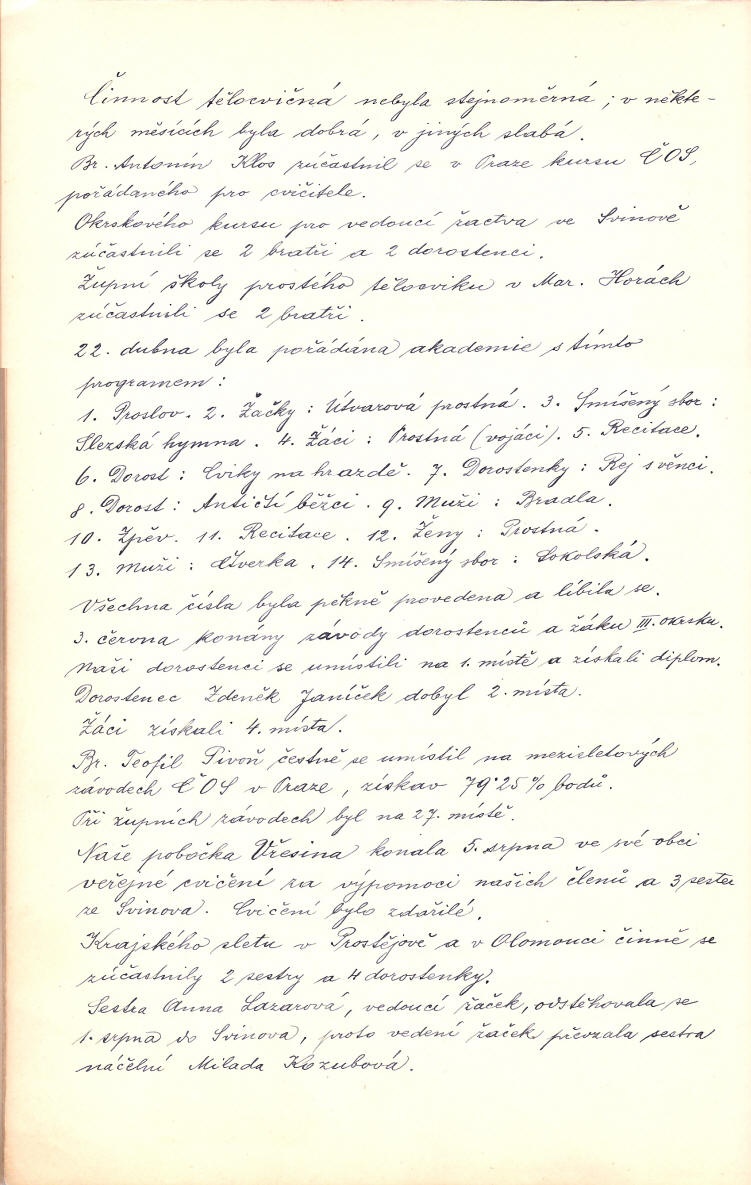 Činnost tělocvičná nebyla stejnoměrná; v někte-
rých měsících byla dobrá, v jiných slabá.
Br. Antonín Klos zúčastnil se v Praze kursu ČOS,
pořádaného pro cvičitele.
Okrskového kursu pro vedoucí žactva ve Svinově
zúčastnili se 2 bratři a 2 dorostenci.
Župní školy prostého tělocviku v Mar. Horách
zúčastnili se 2 bratři.
22. dubna byla pořádána akademie s tímto
programem:
1. Proslov. 2. Žačky: Útvarová prostná. 3. Smíšený sbor:
Slezská hymna. 4. Žáci: Prostná (vojáci). 5. Recitace.
6. Dorost: Cviky na hrazdě. 7. Dorostenky: Rej s věnci.
8. Dorost: Antičtí běžci. 9. Muži: Bradla.
10. Zpěv. 11. Recitace. 12. Ženy: Prostná.
13. Muži: Čtverka. 14. Smíšený sbor: Sokolská.
Všechna čísla byla pěkně provedena a líbila se.
3. června konány závody dorostenců a žáků III. okrsku.
Naši dorostenci se umístili na 1. místě a získali diplom.
Dorostenec Zdeněk Janíček dobyl 2. místa.
Žáci získali 4. místa.
Br. Teofil Pivoň čestně se umístil na meziletových
závodech ČOS v Praze, získav 79·25% bodů.
Při župních závodech byl na 27. místě.
Naše pobočka Vřesina konala 5. srpna ve své obci
veřejné cvičení za výpomoci našich členů a 3 sester
ze Svinova. Cvičení bylo zdařilé.
Krajského sletu v Prostějově a v Olomouci činně se
zúčastnily 2 sestry a 4 dorostenky.
Sestra Anna Lazarová, vedoucí žaček, odstěhovala se
1. srpna do Svinova, proto vedení žaček převzala sestra
náčelní Milada Kozubová.